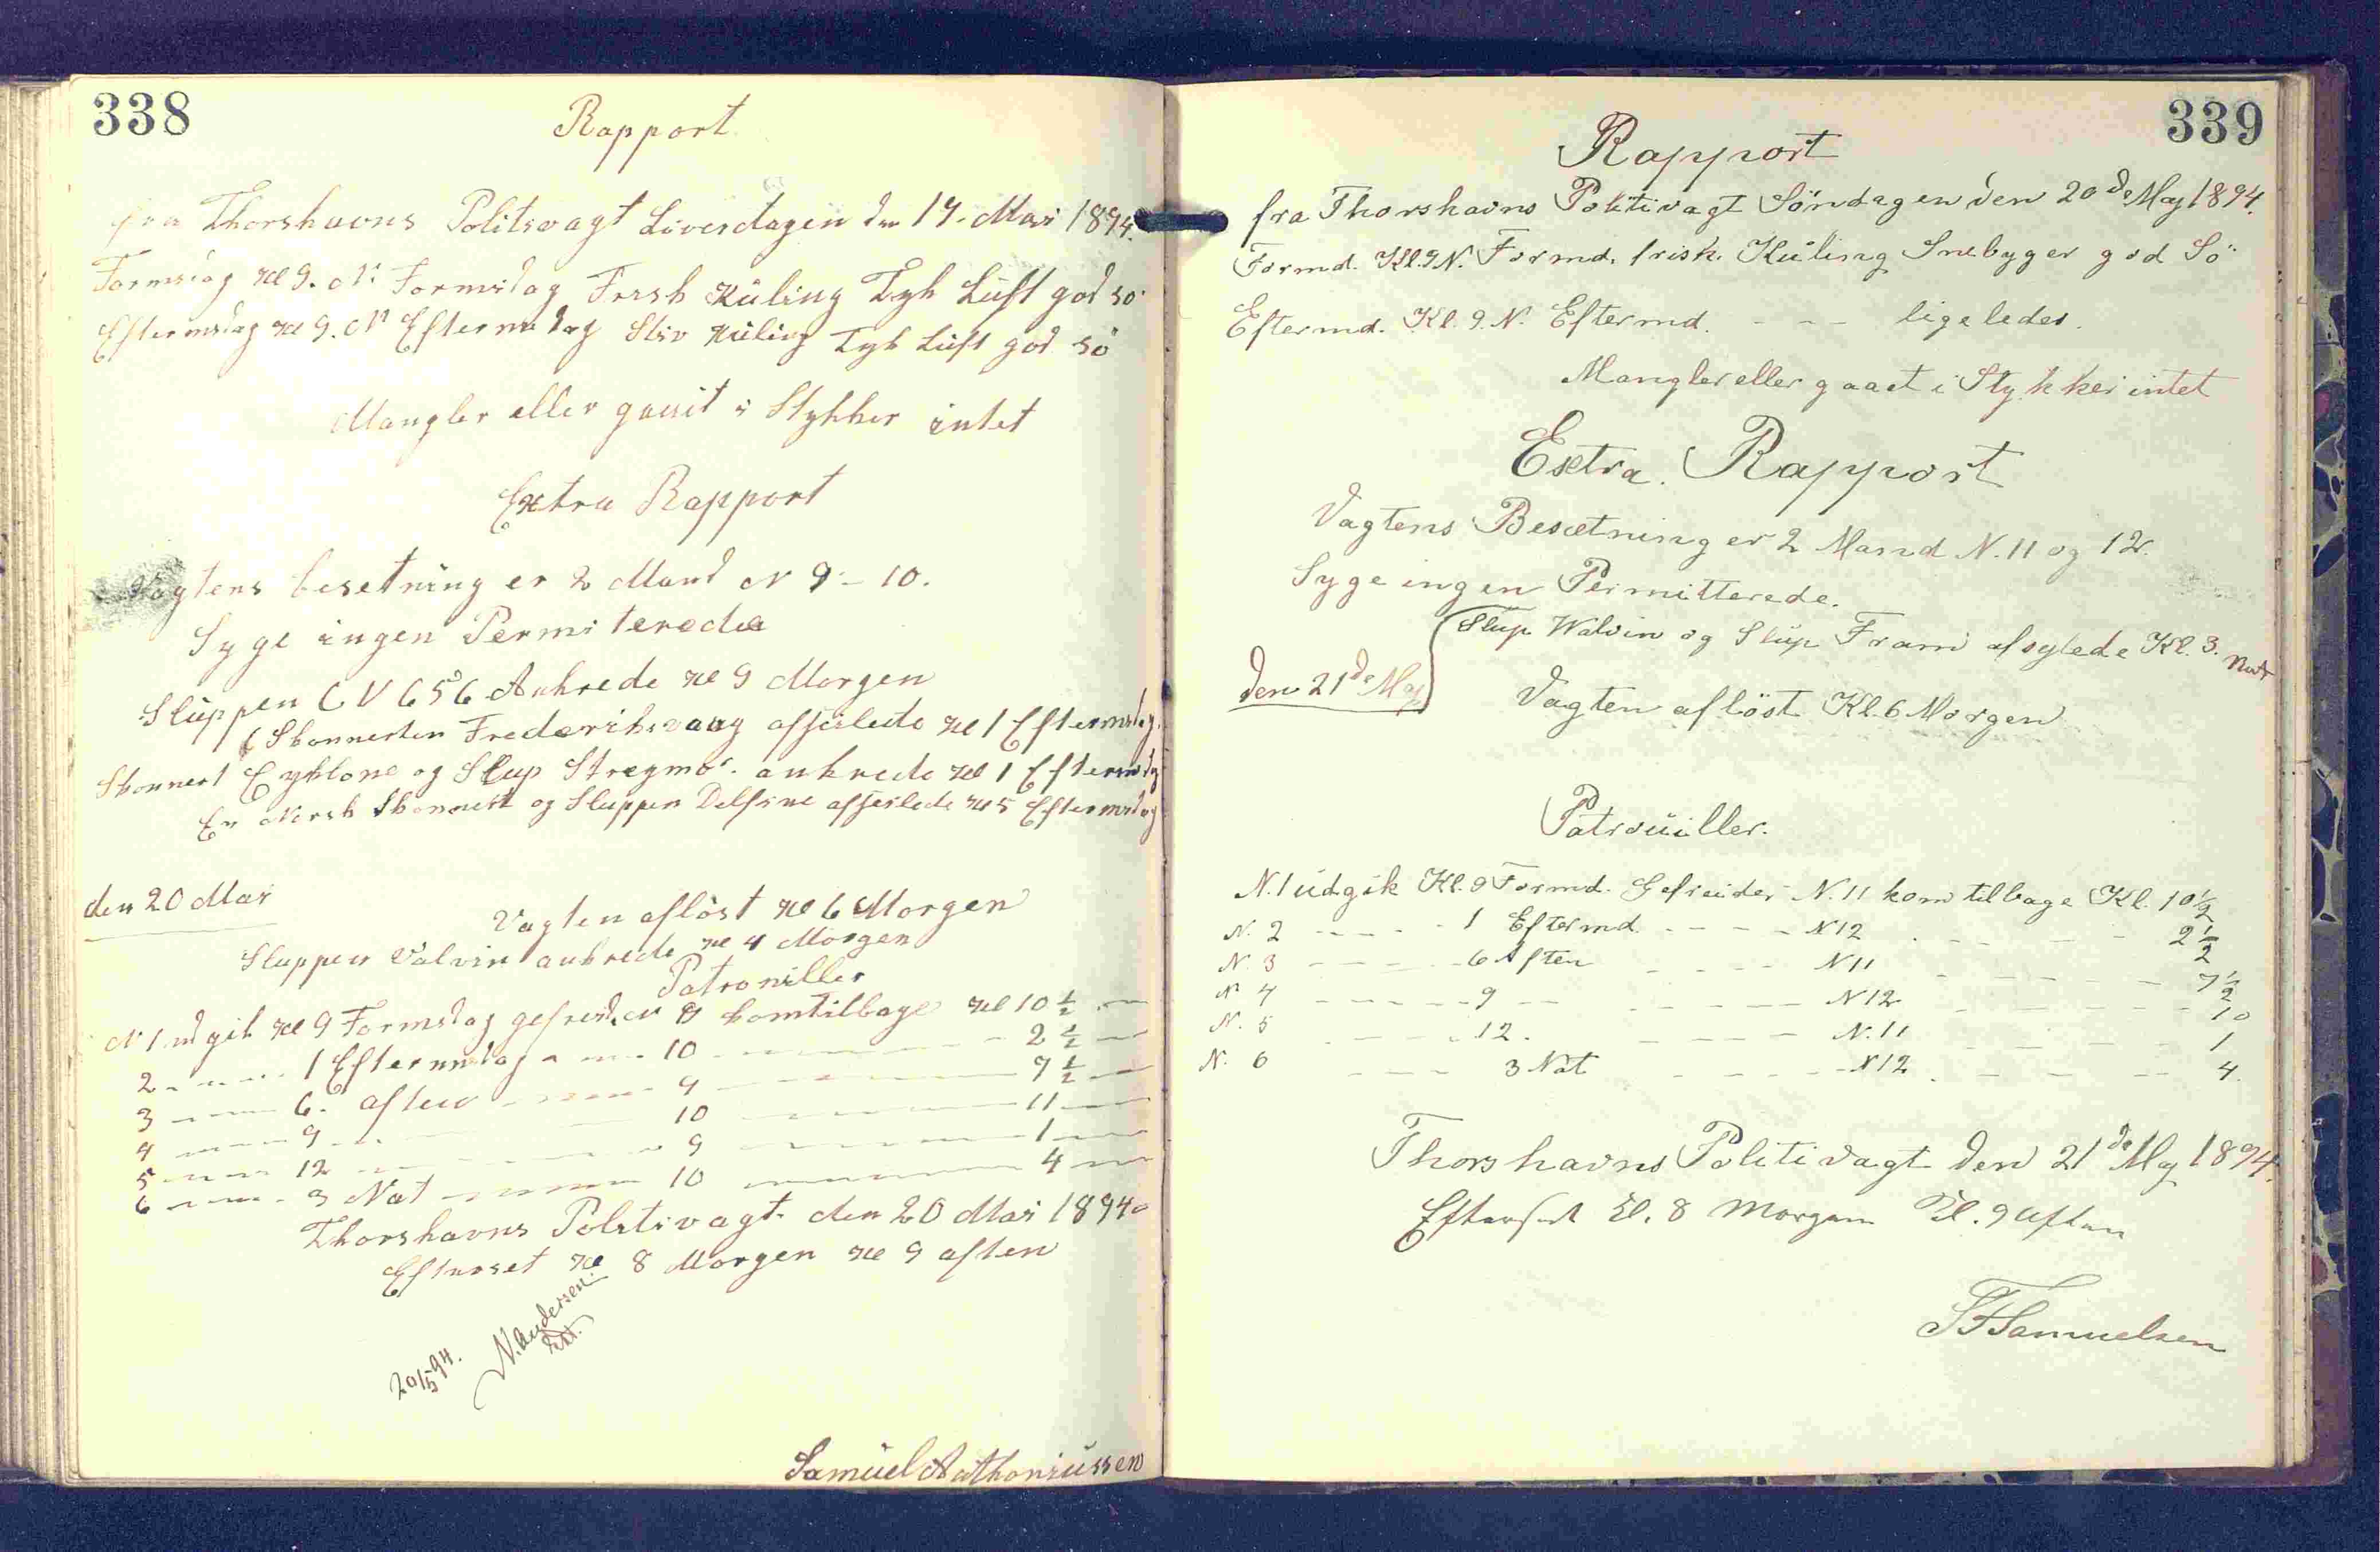 338
Rapport
fra Thorshavns Politivagt Löverdagen den 19. Mai 1894.
Formidag Kl 9. N. Formidag Frish Küling Tyk Lüft god sö
Eftermidag Kl 9. N Eftermidag Stiv Küling Tyk Lüft god sö
Mangler eller gaait i Stykker intet
Extra Rapport
Vagtens besetning er 2 Mand N 9 - 10.
Syge ingen Permiterede
Slüppen C V 656 Ankrede Kl 9 Morgen
Skonnerten Frederiksvaag afseilede Kl 1 Eftermidag.
Skonnert Cyklone og Slup Strøymö. ankrede Kl 1 Eftermidag
En Norsk Skonnert og Sluppen Delfine afseilede Kl 5 Eftermidag
den 20 Mai
Vagten aflöst Kl 6 Morgen
Sluppen Valvin ankrede Kl 4 Morgen
Patrouiller
N 1 udgik Kl 9 Formidag gefreid. N 9 kom tilbage Kl 10 1/2
2 - - - 1 Eftermidag - - - 10 - - - 2 1/2
3 - - - 6. aften - - - 9 - - - 7 1/2
4 - - - 9 - - - 10 - - - 11
5 - - - 12 - - - 9 - - - 1
6 - - - 3 Nat - - - 10 - - - 4
Thorshavns Politivagt. den 20 Mai 1894
Efterset Kl 8 Morgen Kl 9 aften
20/5 94.
N. Andersen.
Samüel Anthoniüssen
339
Rapport
fra Thorshavns Politivagt Söndagen den 20de Maj 1894.
Formd. Kl. 9 N. Formd. frisk. Küling Snebyger god Sö
Eftermd. Kl. 9. N. Eftermd. - - - ligeledes.
Mangler eller gaaet i Stykker intet
Extra. Rapport
Vagtens Besætning er 2 Mand N. 11 og 12.
Syge ingen Permitterede.
Slup Walvin og Slüp Fram afsejlede Kl. 3. Nat
den 21de Maj
Vagten aflöst Kl. 6 Morgen
Patroüiller.
N. 1 üdgik Kl. 9 Formd. Gefreider N. 11 kom tilbage Kl. 10 1/2
N. 2 - - - - 1 Eftermd. - - - - N 12 - - - 2 1/2
N. 3 - - - - 6 Aften - - - - N 11 - - - - 7 1/2
N 4 - - - - - 9 - - - - - - N 12 - - - - 10
N. 5 - - - - 12. - - - - N. 11 - - - - 1
N. 6 - - - 3 Nat - - - - N 12 - - - - 4.
Thorshavns Politivagt den 21de Maj 1894.
Efterset Kl. 8 Morgen Kl. 9 Aften
SFSamuelsen